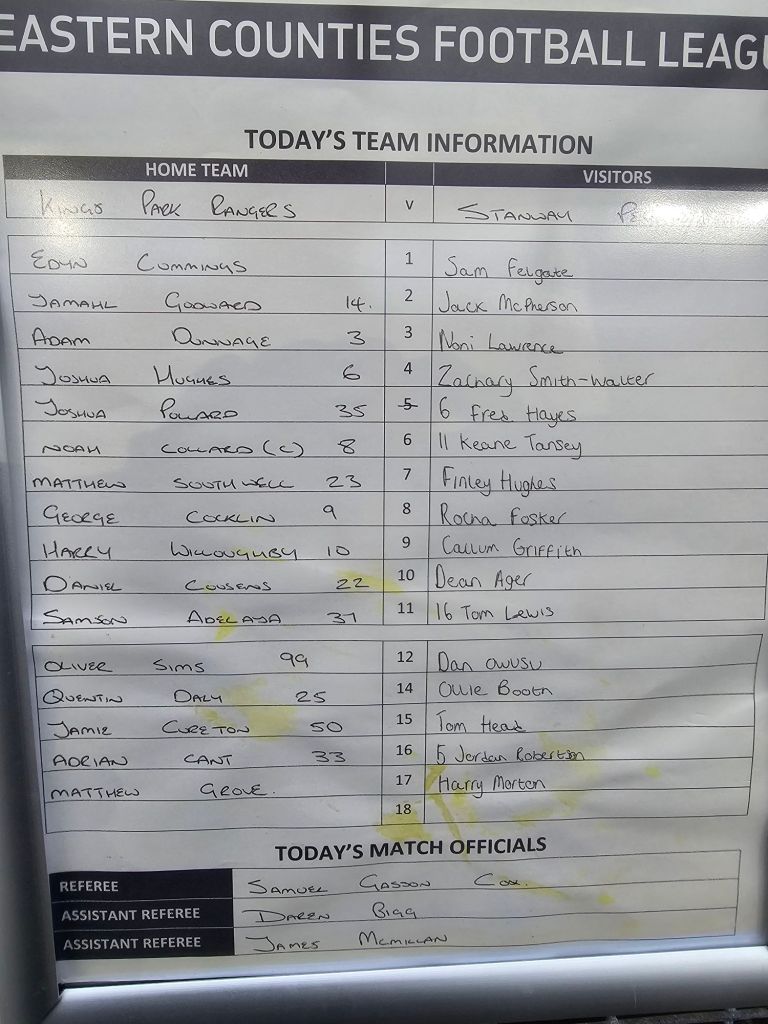 EASTERN COUNTIES FOOTBALL LEAGU
TODAY'S TEAM INFORMATION
HOME TEAM VISITORS
KINGS PARK RANGERS v STANWAY
EDYN CUMMINGS 1 Sam Felgate
JAMAHL GODWARD 14. 2 Jack McPherson
ADAM DUNNAGE 3 3 Noni Lawrence
JOSHUA HUGHES 6 4 Zachary Smith-Walter
JOSHUA POLLARD 35 5 6 Fred Hayes
NOAH COLLARD (C) 8 6 11 Keane Tansey
MATTHEW SOUTHWELL 23 7 Finley Hughes
GEORGE COCKLIN 9 8 Rocha Fosker
HARRY WILLOUGHBY 10 9 Callum Griffith
DANIEL COUSENS 22 10 Dean Ager
SAMSON ADELAJA 37 11 16 Tom Lewis
OLIVER SIMS 99 12 Dan Owusu
QUENTIN DALY 25 14 Ollie Booth
JAMIE CURETON 50 15 Tom Head
ADRIAN CANT 33 16 5 Jordan Robertson
MATTHEW GROVE. 17 Harry Morton
18
TODAY'S MATCH OFFICIALS
REFEREE SAMUEL GASSON COX.
ASSISTANT REFEREE DAREN BIGG
ASSISTANT REFEREE JAMES MCMILLAN